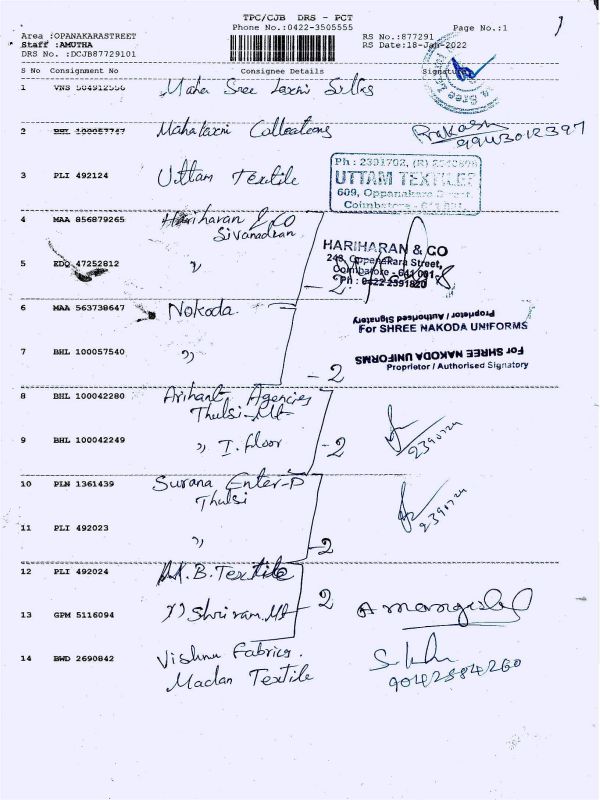 TPC/CJB DRS - PCT
Phone No.:0422-3505555
Page No.:1
Area :OPANAKARASTREET
Staff :AMUTHA
DRS No. :DCJB87729101
RS No.:877291
RS Date:18-Jan-2022
S No Consignment No Consignee Details Signature
1 VNS 564912556 Maha Sree Laxmi Silks
2 BHL 100057747 Mahalaxmi Collections Prakash
9943012397
3 PLI 492124 Uttam Textile
UTTAM TEXTILES
609, Oppanakara Street,
Coimbatore - 641 001
4 MAA 856879265 Hariharan & CO
Sivanadran
HARIHARAN & CO
248, Oppanakara Street,
Coimbatore - 641 001.
Ph : 0422 2391820
5 EDQ 47252812 "
- 2
6 MAA 563738647 Nokoda
Proprietor / Authorised Signatory
For SHREE NAKODA UNIFORMS
7 BHL 100057540 " - 2
For SHREE NAKODA UNIFORMS
Proprietor / Authorised Signatory
8 BHL 100042280 Arihant Agencies
Thulsi-Mt
9 BHL 100042249 " I. floor - 2
2390724
10 PLN 1361439 Surana Enter-P
Thulsi
2390724
11 PLI 492023 " - 2
12 PLI 492024 A.K.B. Textile
13 GPM 5116094 " Shri ram. Mt - 2
14 BWD 2690842 Vishnu Fabrics.
Madan Textile
9042584260